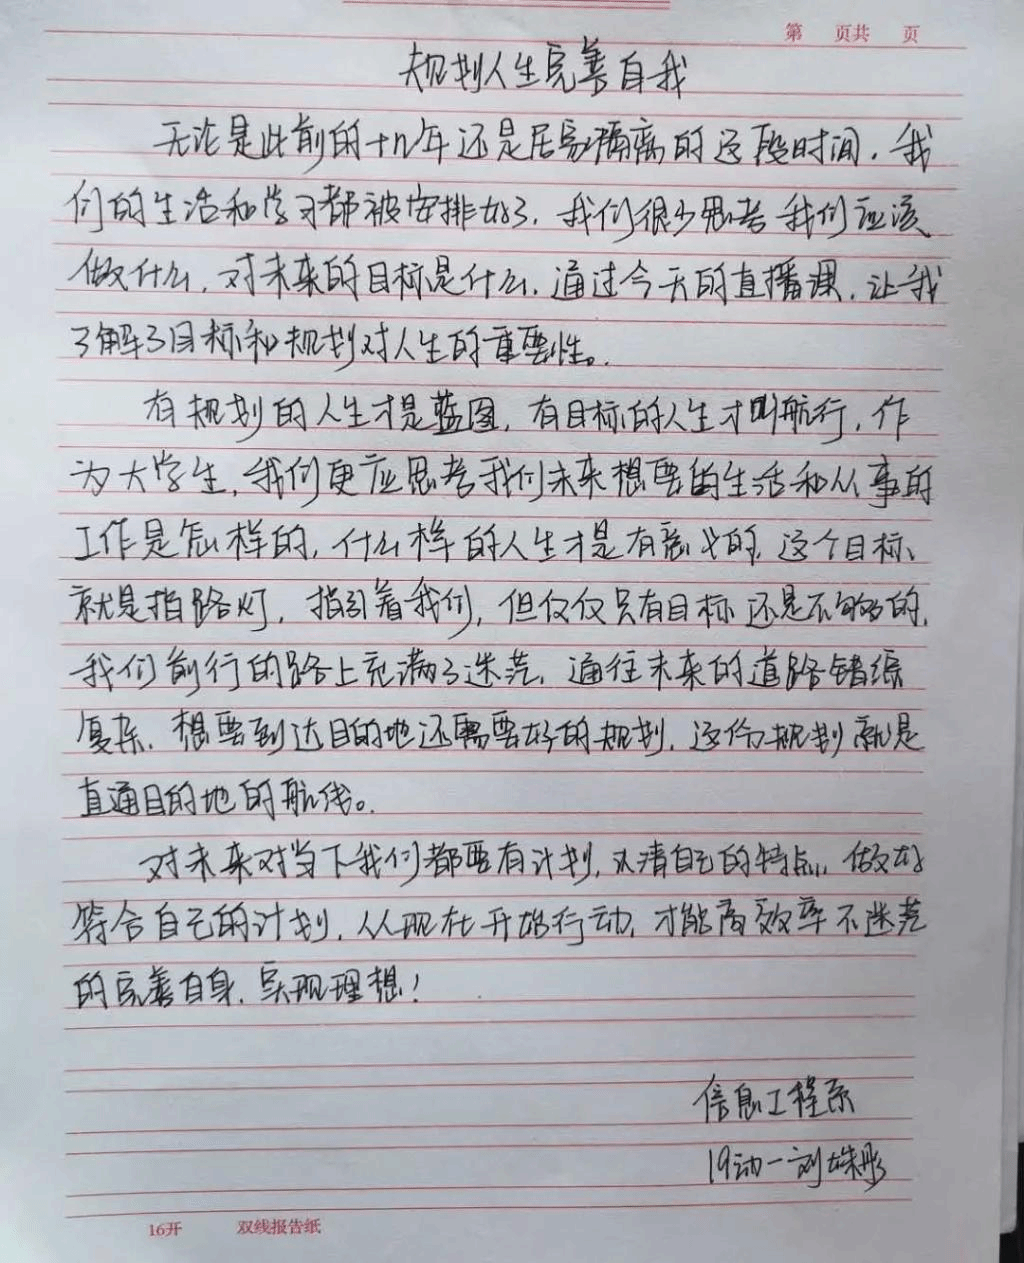 第 页共 页
规划人生完善自我
无论是此前的十几年还是居家隔离的这段时间，我
们的生活和学习都被安排好了，我们很少思考我们应该
做什么，对未来的目标是什么，通过今天的直播课，让我
了解了目标和规划对人生的重要性。
有规划的人生才是蓝图，有目标的人生才叫航行，作
为大学生，我们更应思考我们未来想要的生活和从事的
工作是怎样的，什么样的人生才是有意义的，这个目标、
就是指路灯，指引着我们，但仅仅只有目标还是不够的，
我们前行的路上充满了迷茫，通往未来的道路错综
复杂，想要到达目的地还需要好的规划，这份规划就是
直通目的地的航线。
对未来对当下我们都要有计划，认清自己的特点，做好
符合自己的计划，从现在开始行动，才能高效率不迷茫
的完善自身，实现理想！
信息工程系
19动一刘姝彤
16开 双线报告纸